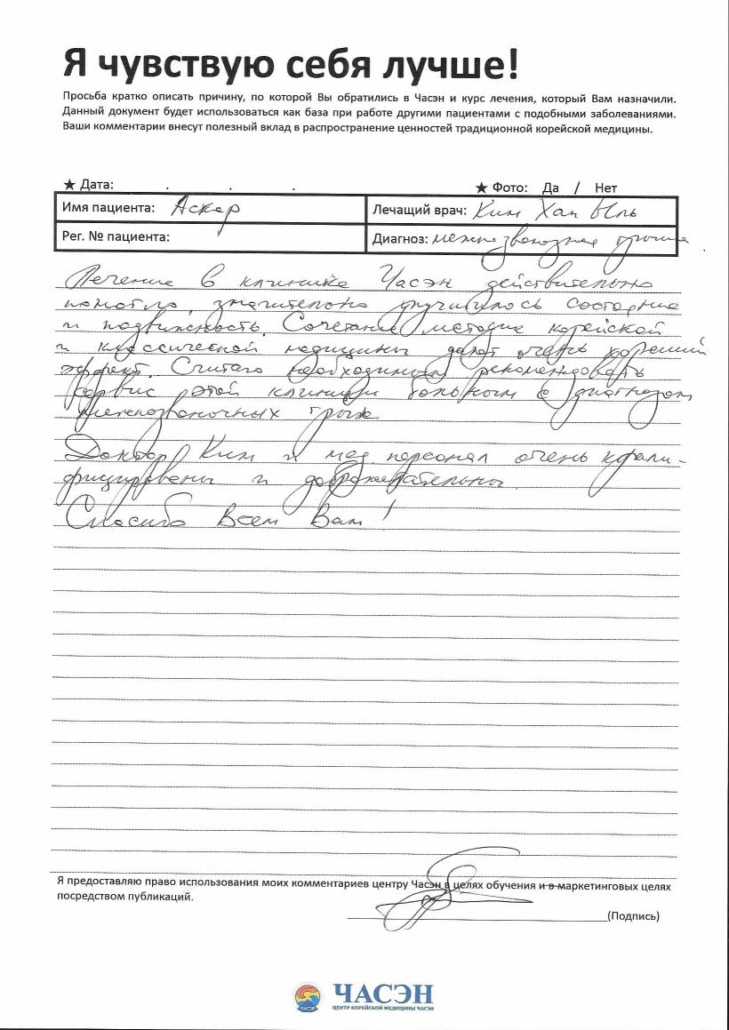 Я чувствую себя лучше!
Просьба кратко описать причину, по которой Вы обратились в Часэн и курс лечения, который Вам назначили.
Данный документ будет использоваться как база при работе другими пациентами с подобными заболеваниями.
Ваши комментарии внесут полезный вклад в распространение ценностей традиционной корейской медицины.
★ Дата: . . . ★ Фото: Да / Нет
Имя пациента: Аскар Лечащий врач: Ким Хан Быль
Рег. № пациента: Диагноз: межпозвоночная грыжа
Лечение в клинике Часэн действительно
помогло, значительно улучшилось состояние
и подвижность. Сочетание методик корейской
и классической медицины дают очень хороший
эффект. Считаю необходимым рекомендовать
сервис этой клиники больным с диагнозом
межпозвоночных грыж
Доктор Ким и мед. персонал очень квали-
фицированы и доброжелательны.
Спасибо Всем Вам!
Я предоставляю право использования моих комментариев центру Часэн в целях обучения и в маркетинговых целях
посредством публикаций.
(Подпись)
ЧАСЭН
ЦЕНТР КОРЕЙСКОЙ МЕДИЦИНЫ ЧАСЭН